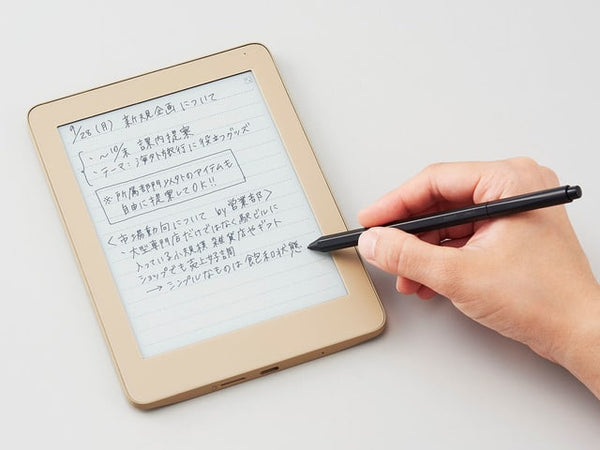 9/28(月) 新規企画について
・〜10/末 課内提案
・テーマ:海外旅行に役立つグッズ
※所属部門以外のアイテムも
自由に提案してOK!!
<市場動向について by営業部>
・大型専門店だけではなく駅ビルに
入っている小規模雑貨店やギフト
ショップでも売上好調
→シンプルなものは飽和状態